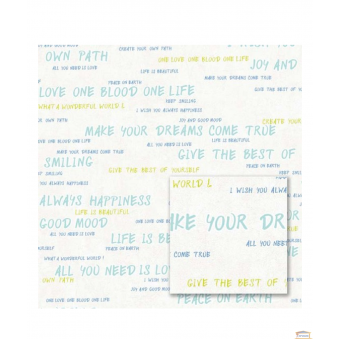 CREATE YOUR OWN PATH
I WISH YOU
OWN PATH
ONE LOVE ONE BLOOD ONE LIFE
JOY AND
ALL YOU NEED IS LOVE
LIFE IS BEAUTIFUL
PEACE ON EARTH
MAKE YOUR DREAMS COME TRUE
LOVE ONE BLOOD ONE LIFE
KEEP SMILING
WHAT A WONDERFUL WORLD !
I WISH YOU ALWAYS HAPPINESS
CREATE YOUR
JOY AND GOOD MOOD
MAKE YOUR DREAMS COME TRUE
ONE LOVE ONE BLOOD ONE LIFE
ALL YOU NEED IS LOVE
MAKE YOUR DREAMS COME TRUE
LIFE IS BEAUTIFUL
GIVE THE BEST OF
SMILING
PEACE ON EARTH
GIVE THE BEST OF YOURSELF
WORLD !
I WISH YOU ALWA
ALWAYS HAPPINESS
LIFE IS BEAUTIFUL
GOOD MOOD
ONE LOVE ONE BLOOD ONE LIFE
IKE YOUR DR
ALL YOU NEED IS LOVE
LIFE IS BE
ALL YOU NEED
WHAT A WONDERFUL WORLD !
COME TRUE
JOY AND GOOD MOOD
ALL YOU NEED IS LO
OWN PATH
GIVE THE BEST OF
ONE LOVE ONE BLOOD ONE LIFE
PEACE ON EARTH